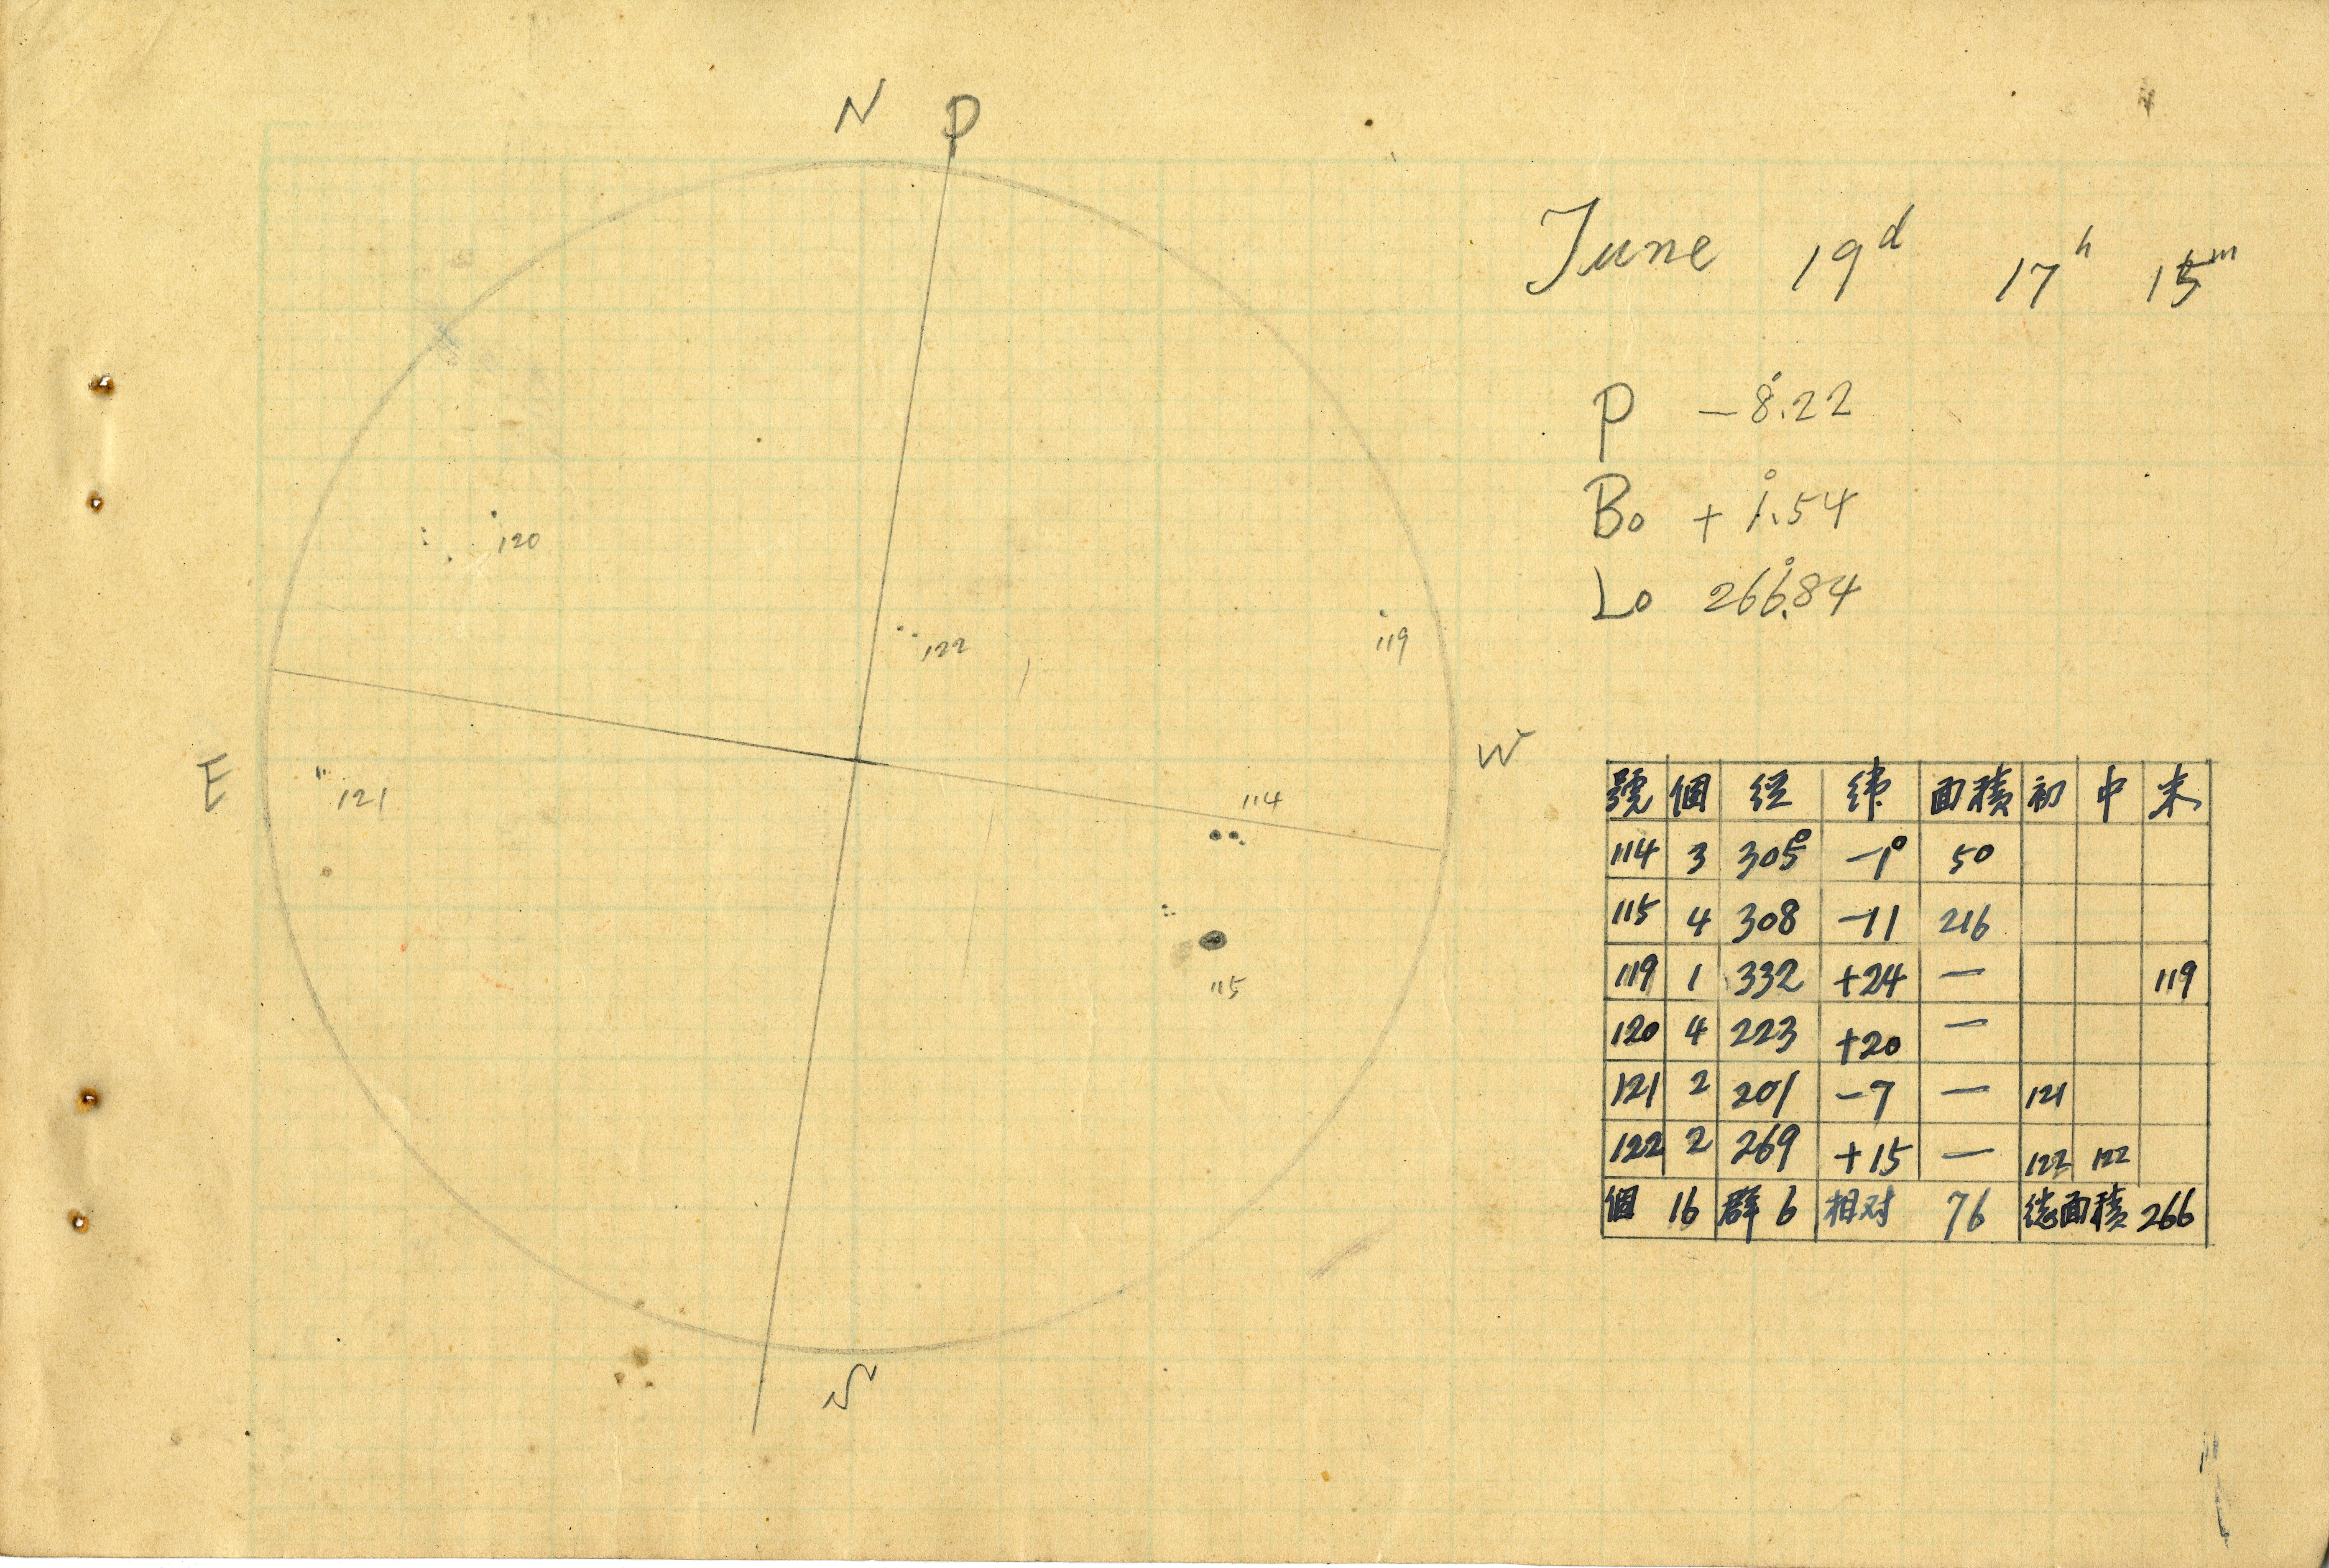 N P
120
122
119
E
W
121
114
115
S
June 19d 17h 15m
P -8°.22
Bo +1°.54
Lo 266°.84
號 個 経 緯 面積 初 中 末
114 3 305° -1° 50
115 4 308 -11 216
119 1 332 +24 — 119
120 4 223 +20 —
121 2 201 -7 — 121
122 2 269 +15 — 122 122
個 16 群 6 相対 76 総面積 266